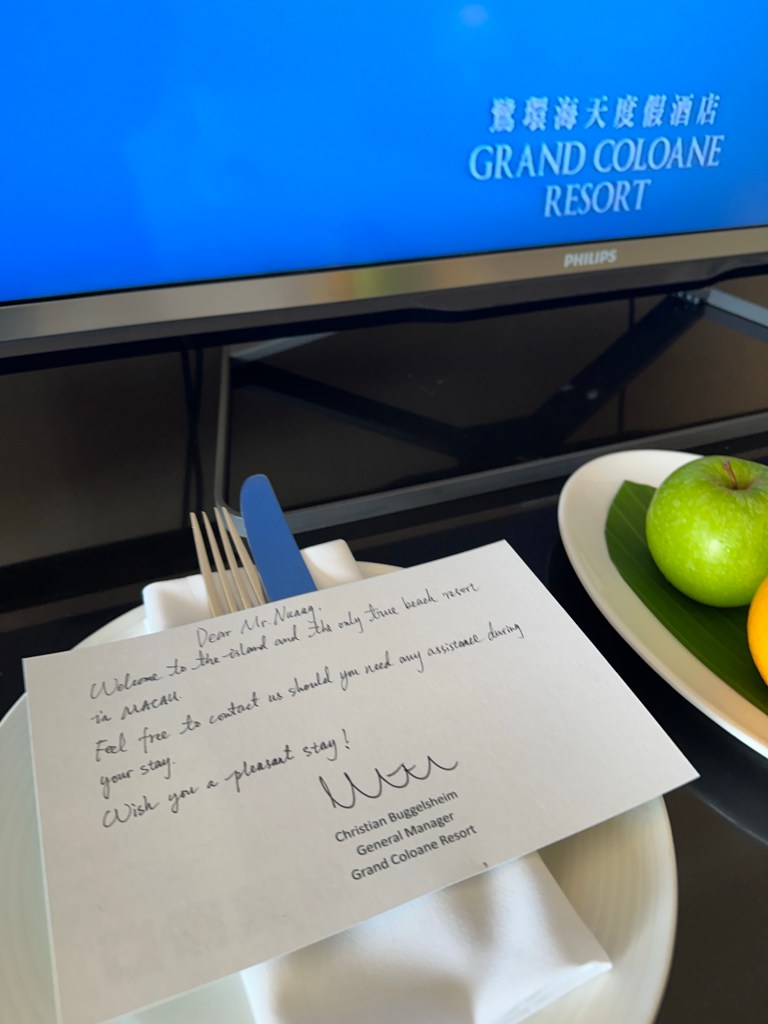 鷺環海天度假酒店
GRAND COLOANE
RESORT
PHILIPS
Dear Mr.
Welcome to the island and the only true beach resort
in MACAU.
Feel free to contact us should you need any assistance during
your stay.
Wish you a pleasant stay!
Christian Buggelsheim
General Manager
Grand Coloane Resort